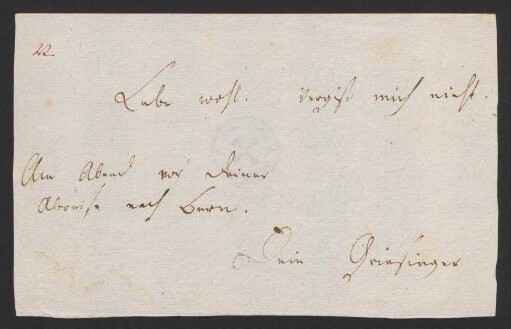 22.
Lebe wohl. Vergiß mich nicht.
Am Abend vor Deiner
Abreise nach Bern.
Dein Griesinger